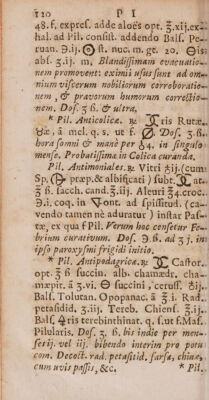 120 P I
48.f. expres. adde aloës opt. ℥.xij.ex-
hal. ad Pil. consist. addendo Bals. Pe-
ruan. ℈.ij. st. nuc. m. gt. 20. Θis:
abs. ʒ.ij. m. Blandissimam evacuatio-
nem promovent: eximii usus sunt ad om-
nium viscerum nobiliorum corroboratio-
nem, & pravorum humorum correctio-
nem. Dos. ʒ ß. & ultra.
* Pil. Anticolicæ. ℞ Ris Rutæ.
æ, ā mel. q. s. ut f. Dos. ʒ.ß.
hora somni & mane gr 4. in singulo
mense. Probatissima in Colica curanda.
Pil. Antimoniales. ℞ Vitri ♁ij. (cum
Sp. præp. & albificati) subt. at.
ʒ ß. sacch. cand. ʒ.iij. Aleuri ʒ4.croc.
℈.i. coq. in ▽ont. ad spissitud. (ca-
vendo tamen nè aduratur) instar Pas-
tæ, ex qua f Pil. Verum hoc censetur Fe-
brium curativum. Dos. ℈.ß. ad ʒ j. in
ipso paroxysmi frigidi initio.
* Pil. Antipodagricæ. ℞ Castor.
opt. ʒ ß succin. alb. chamædr. cha-
mæpit. ā ʒ.vi. Θ succini, ceruss. ♁ij.
Bals. Tolutan. Opopanac. ā ʒ.i. Rad.
petasidid. ʒ.iij. Tereb. Chiens. ℥.ij.
Bals. ris terebinthinat. q. s. ut f. Mas.
Pilularis. Dos. ʒ. ß. bis indie per men-
ses iij. vel iij. bibendo interim pro potu
com. Decoct. rad. petasitid. sarsæ, chinæ,
cum uvis passis, &c. * Pil.